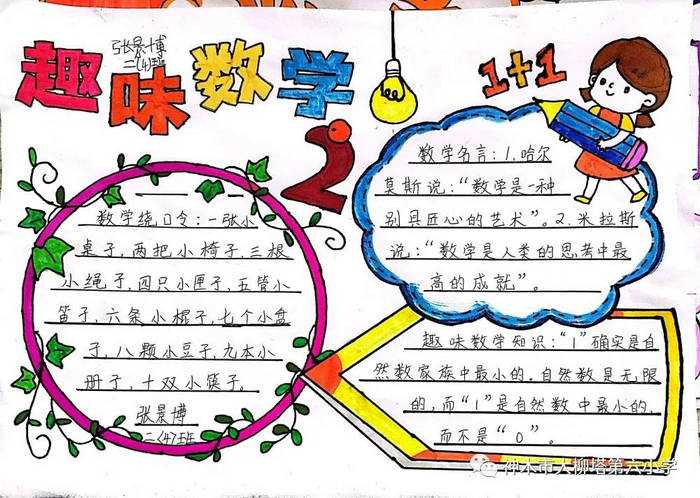 趣味数学
张景博
二(4)班
1+1
2
数学绕口令：一张小
桌子,两把小椅子,三根
小绳子,四只小匣子,五管小
笛子,六条小棍子,七个小盆
子,八颗小豆子,九本小
册子,十双小筷子。
张景博
二(4)班
数学名言：1.哈尔
莫斯说：“数学是一种
别具匠心的艺术”。2.米拉斯
说：“数学是人类的思考中最
高的成就”。
趣味数学知识：“1”确实是自
然数家族中最小的.自然数是无限
的,而“1”是自然数中最小的.
而不是“0”。
神木市大柳塔第六小学